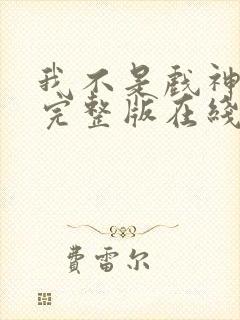 我不是戏神
完整版在线
費雷尔